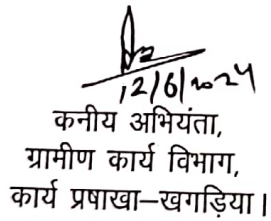 12/6/2024
कनीय अभियंता,
ग्रामीण कार्य विभाग,
कार्य प्रषाखा–खगड़िया।